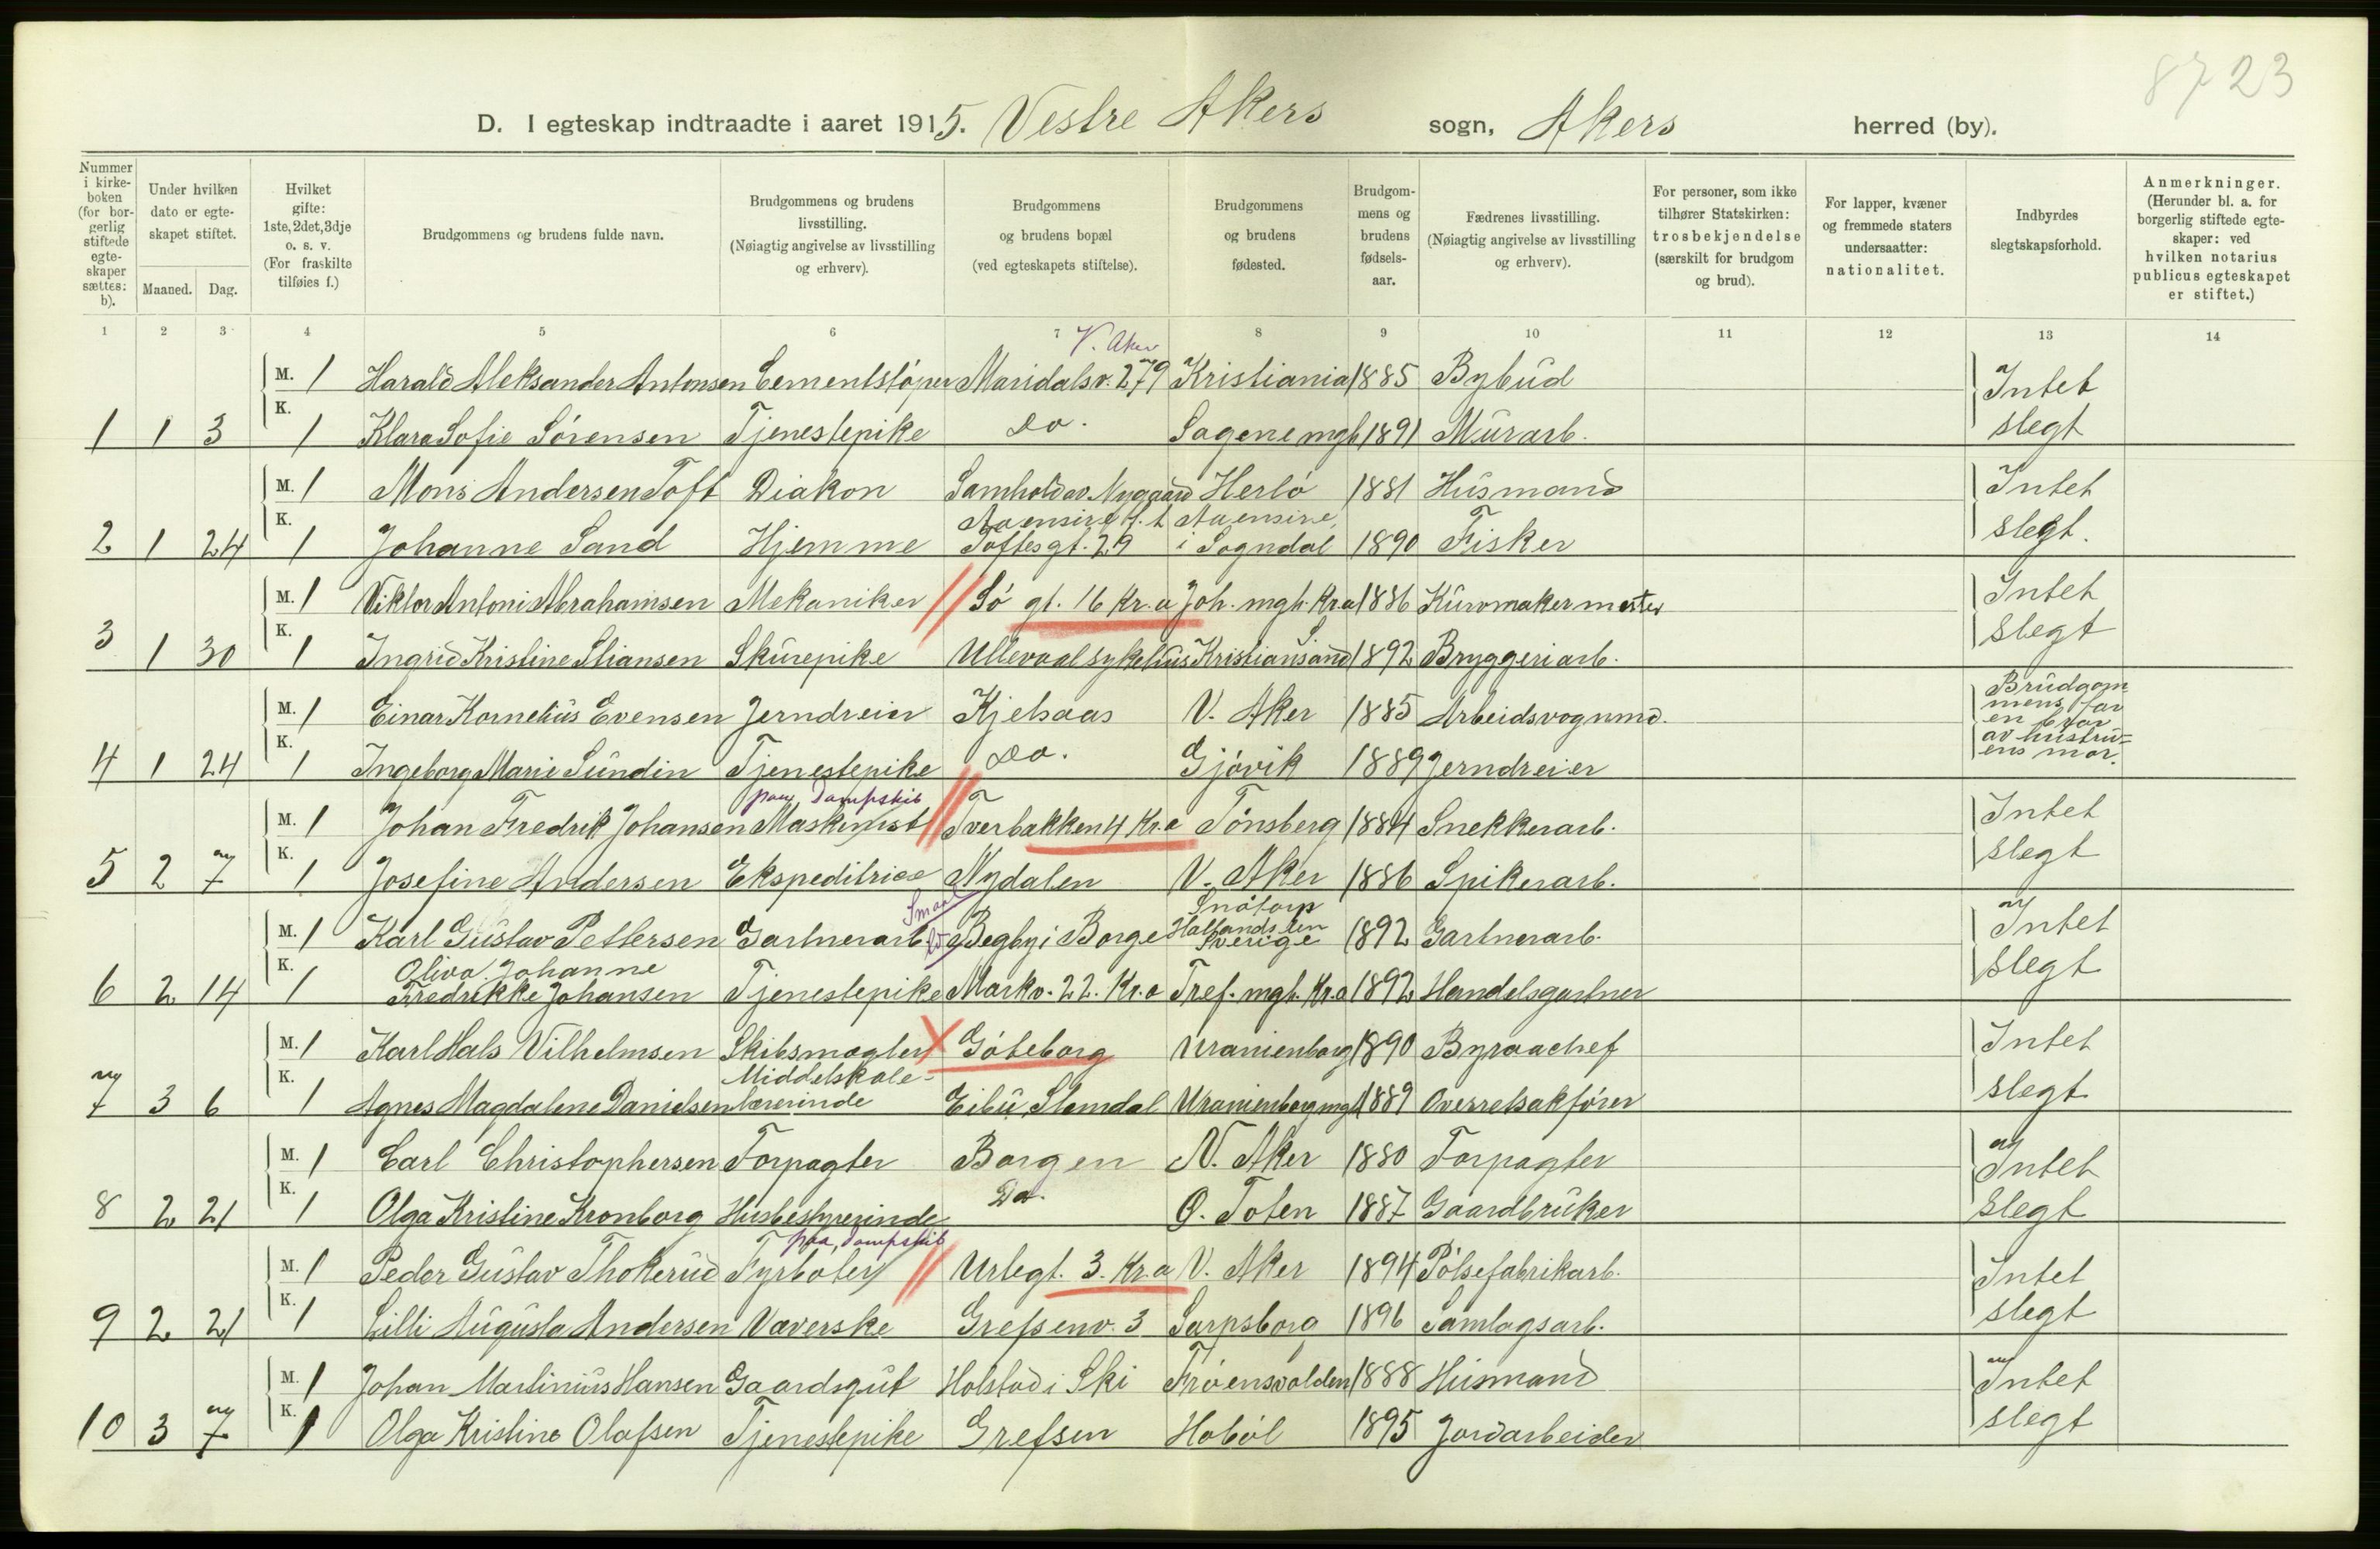 8723
D. I egteskap indtraadte i aaret 1915. Vestre Akers sogn, Akers herred (by).
Nummer i kirke-boken (for bor-gerlig stiftede egte-skaper sættes: b).
Under hvilken dato er egte-skapet stiftet.
Maaned. Dag.
Hvilket gifte: 1ste, 2det, 3dje o. s. v. (For fraskilte tilføies f.)
Brudgommens og brudens fulde navn.
Brudgommens og brudens livsstilling. (Nøiagtig angivelse av livsstilling og erhverv).
Brudgommens og brudens bopæl (ved egteskapets stiftelse).
Brudgommens og brudens fødested.
Brudgom-mens og brudens fødsels-aar.
Fædrenes livsstilling. (Nøiagtig angivelse av livsstilling og erhverv).
For personer, som ikke tilhører Statskirken: trosbekjendelse (særskilt for brudgom og brud).
For lapper, kvæner og fremmede staters undersaatter: nationalitet.
Indbyrdes slegtskapsforhold.
Anmerkninger. (Herunder bl. a. for borgerlig stiftede egte-skaper: ved hvilken notarius publicus egteskapet er stiftet.)
1 2 3 4 5 6 7 8 9 10 11 12 13 14
V. Aker
M. 1 Harald Aleksander Antonsen Cementstøper Maridalsv. 279 Kristiania 1885 Bybud Intet
1 1 3 K. 1 Klara Sofie Sørensen Tjenestepike do. Sagene mgh 1891 Murarb. slegt
M. 1 Mons Andersen Toft Diakon Samhold av. Nygaard Herlø 1881 Husmand Intet
2 1 24 K. 1 Johanne Sand Hjemme Aaensire p.t. Toftesgt. 29 Aaensire i Sogndal 1890 Fisker slegt.
M. 1 Viktor Antoni Abrahamsen Mekaniker // Sø gt. 16 Kr.a Joh. mgh. Kr.a 1886 Kurvmakermester Intet
3 1 30 K. 1 Ingrid Kristine Stiansen Skurepike Ullevaal sykehus Kristiansand S. 1892 Bryggeriarb. slegt
M. 1 Einar Kornelius Evensen Jerndreier Kjelsaas V. Aker 1885 Arbeidsvognmd. Brudgom
mens far
en bror
av hustru=
ens mor.
4 1 24 K. 1 Ingeborg Marie Sundin Tjenestepike do. Gjøvik 1889 Jerndreier
paa Dampskib
M. 1 Johan Fredrik Johansen Maskinist // Tverbakken 4 Kr.a Tønsberg 1884 Snekkerarb. Intet
5 2 7 K. 1 Josefine Andersen Ekspeditrice Nydalen V. Aker 1886 Spikerarb. slegt
M. 1 Karl Gustav Pettersen Gartnerarb. Begby i Borge Snøtorp Hallands len Sverige 1892 Gartnerarb. Intet
6 2 14 K. 1 Oliva Johanne Fredrikke Johansen Tjenestepike Markv. 22. Kr.a Tref. mgh. Kr.a 1892 Handelsgartner slegt
M. 1 Karl Hals Vilhelmsen Skibsmægler X Gøteborg Uranienborg 1890 Byraachef Intet
7 3 6 K. 1 Agnes Magdalene Danielsen Middelskole-lærerinde Eibu, Slemdal Uranienborg mgh 1889 Overretssakfører slegt
M. 1 Carl Christophersen Forpagter Borgen N. Aker 1880 Forpagter Intet
8 2 21 K. 1 Olga Kristine Kronborg Husbestyrerinde Do. Ø. Toten 1887 Gaardbruker slegt
paa Dampskib
M. 1 Peder Gustav Thokerud Fyrbøter // Urtegt. 3. Kr.a V. Aker 1894 Pølsefabrikarb. Intet
9 2 21 K. 1 Lilli Augusta Andersen Væverske Grefsenv. 3 Sarpsborg 1896 Samlagsarb. slegt
M. 1 Johan Martinius Hansen Gaardsgut Holstad i Ski Frøensvolden 1888 Husmand Intet
10 3 7 K. 1 Olga Kristine Olafsen Tjenestepike Grefsen Hobøl 1895 Jordarbeider slegt